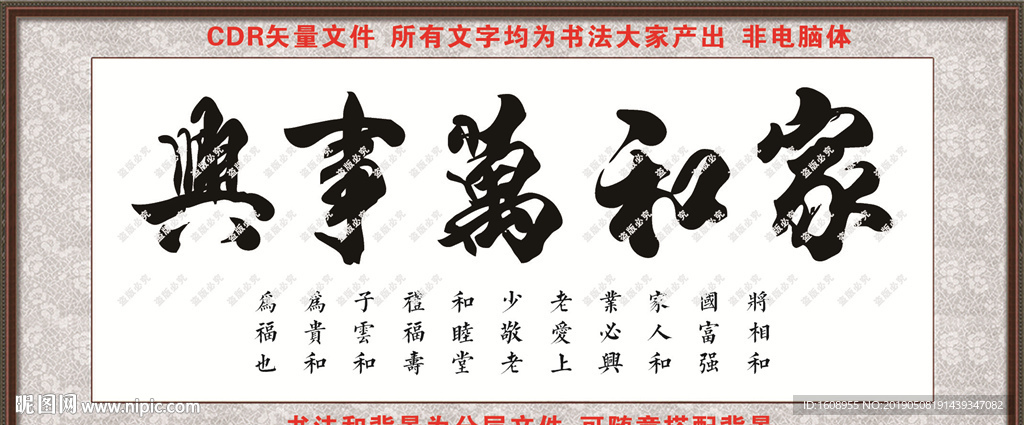 CDR矢量文件 所有文字均为书法大家产出 非电脑体
家和萬事興
將相和
國富强
家人和
業必興
老愛上
少敬老
和睦堂
禮福壽
子雲和
為貴和
為福也
盗版必究
昵图网 www.nipic.com
ID:1608955 NO:20190508191439347082
书法和背景为分层文件 可随意搭配背景